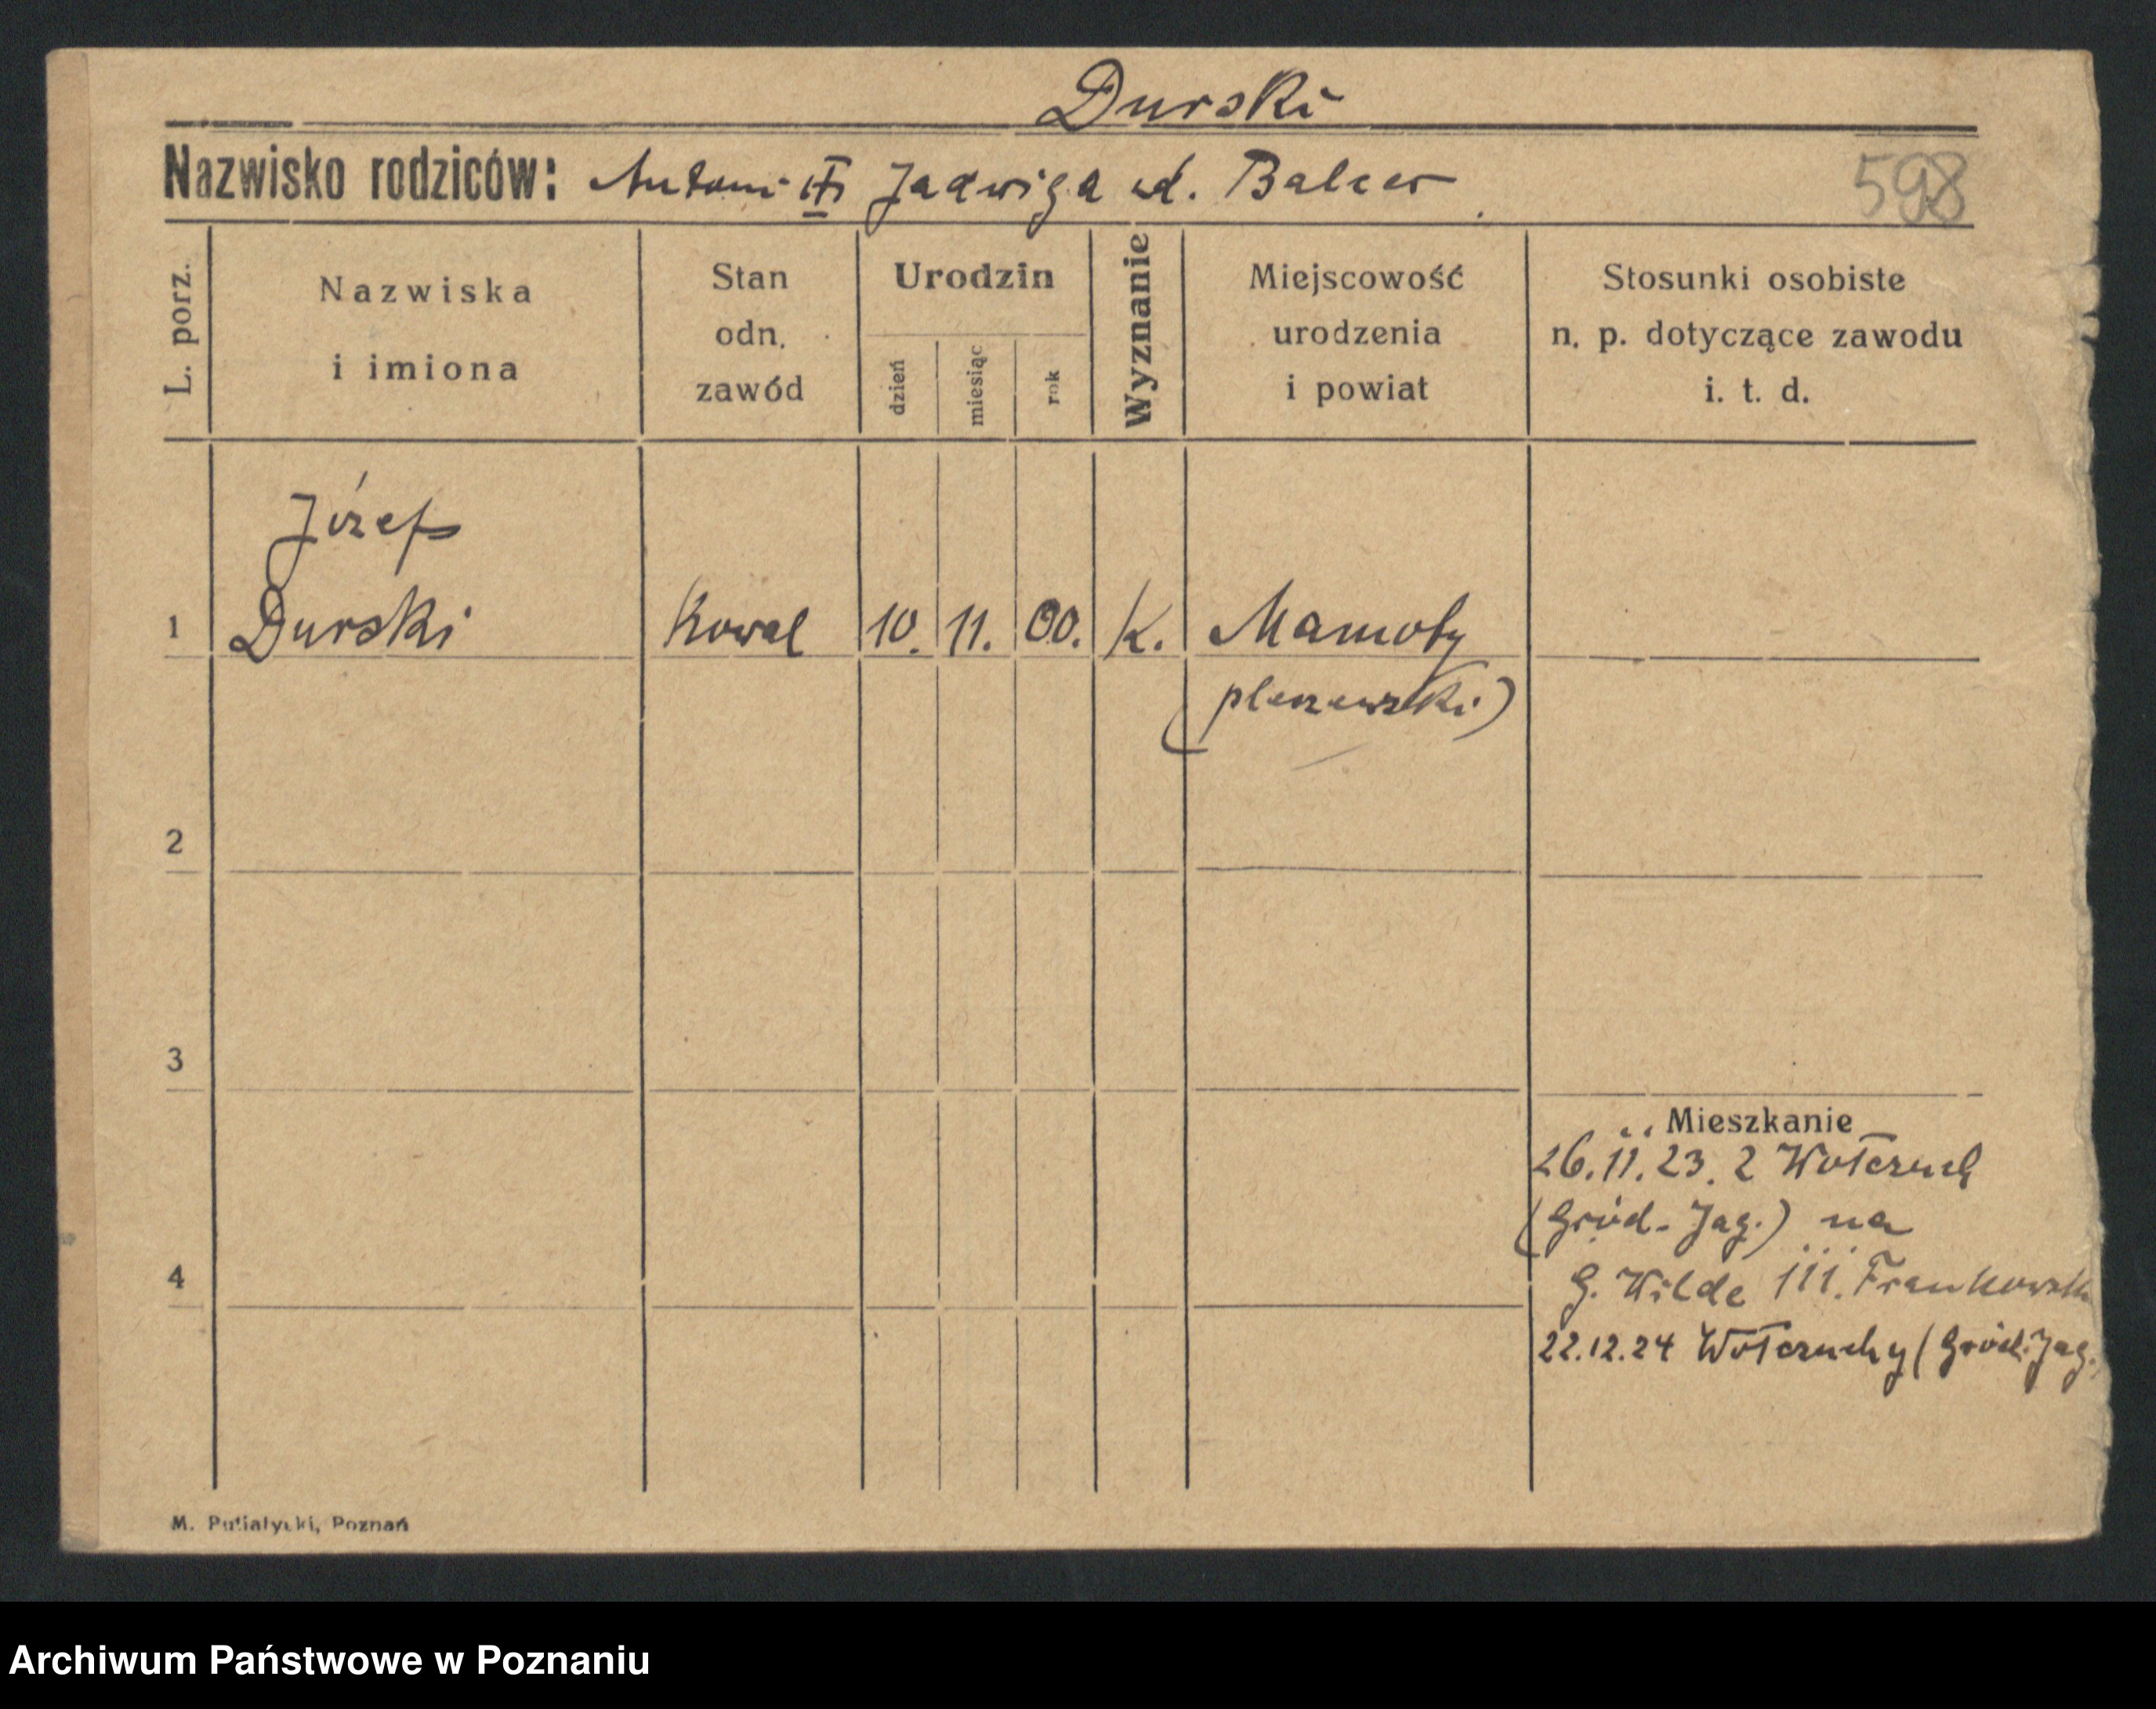 Durski
Nazwisko rodziców: Antoni i Jadwiga ud. Balcer
598
L. porz.
Nazwiska
i imiona
Stan
odn.
zawód
Urodzin
dzień
miesiąc
rok
Wyznanie
Miejscowość
urodzenia
i powiat
Stosunki osobiste
n. p. dotyczące zawodu
i. t. d.
Józef
1 Durski Kowal 10. 11. 00. K. Mamoty
(pleszewski)
2
3
Mieszkanie
26.11.23. z Wołczuch
(Gród. Jag.) na
4
G. Wilde 111. Frankowsk
22.12.24 Wołczuchy (Gród. Jag.
M. Putiatycki, Poznań
Archiwum Państwowe w Poznaniu